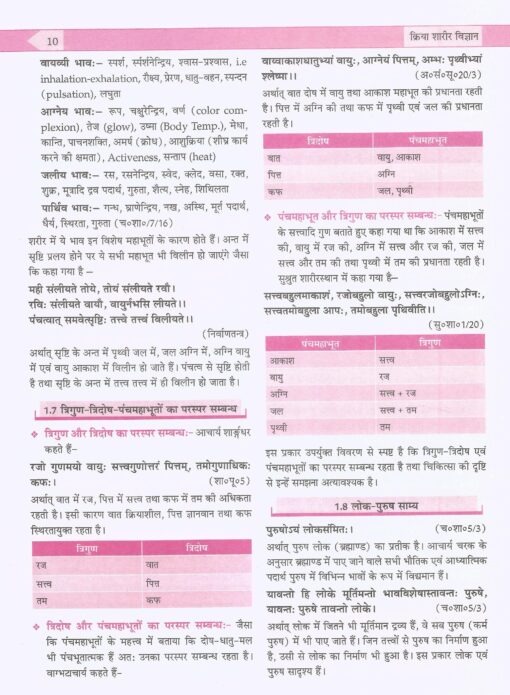 10
क्रिया शारीर विज्ञान
वायव्यी भाव:– स्पर्श, स्पर्शनेन्द्रिय, श्वास-प्रश्वास, i.e
inhalation-exhalation, रौक्ष्य, प्रेरण, धातु-वहन, स्पन्दन
(pulsation), लघुता
आग्नेय भाव:– रूप, चक्षुरेन्द्रिय, वर्ण (color com-
plexion), तेज (glow), उष्मा (Body Temp.), मेधा,
कान्ति, पाचनशक्ति, अमर्ष (क्रोध), आशुक्रिया (शीघ्र कार्य
करने की क्षमता), Activeness, सन्ताप (heat)
जलीय भाव:– रस, रसनेन्द्रिय, स्वेद, क्लेद, वसा, रक्त,
शुक्र, मूत्रादि द्रव पदार्थ, गुरुता, शैत्य, स्नेह, शिथिलता
पार्थिव भाव:– गन्ध, घ्राणेन्द्रिय, नख, अस्थि, मूर्त पदार्थ,
धैर्य, स्थिरता, गुरुता (च०शा०/7/16)
शरीर में ये भाव इन विशेष महाभूतों के कारण होते हैं। अन्त में
सृष्टि प्रलय होने पर ये सभी महाभूत भी विलीन हो जाएंगे जैसा
कि कहा गया है –
मही संलीयते तोये, तोयं संलीयते रवौ।
रवि: संलीयते वायौ, वायुर्नभसि लीयते।।
पंचत्वात् समवेत्सृष्टि: तत्त्वे तत्त्वं विलीयते।।
(निर्वाणतन्त्र)
अर्थात् सृष्टि के अन्त में पृथ्वी जल में, जल अग्नि में, अग्नि वायु
में एवं वायु आकाश में विलीन हो जाते हैं। पंचत्व से सृष्टि होती
है तथा सृष्टि के अन्त में तत्त्व तत्त्व में ही विलीन हो जाता है।
1.7 त्रिगुण-त्रिदोष-पंचमहाभूतों का परस्पर सम्बन्ध
❖ त्रिगुण और त्रिदोष का परस्पर सम्बन्ध:– आचार्य शार्ङ्गधर
कहते हैं–
रजो गुणमयो वायु: सत्त्वगुणोत्तरं पित्तम्, तमोगुणाधिक:
कफ:। (शा०पू०5)
अर्थात् वात में रज, पित्त में सत्त्व तथा कफ में तम की अधिकता
रहती है। इसी कारण वात क्रियाशील, पित्त ज्ञानवान तथा कफ
स्थिरतायुक्त रहता है।
त्रिगुण त्रिदोष
रज वात
सत्त्व पित्त
तम कफ
❖ त्रिदोष और पंचमहाभूतों का परस्पर सम्बन्ध:– जैसा
कि पंचमहाभूतों के महत्त्व में बताया कि दोष-धातु-मल
भी पंचभूतात्मक हैं अत: उनका परस्पर सम्बन्ध रहता है।
वाग्भटाचार्य कहते हैं–
वाय्वाकाशधातुभ्यां वायु:, आग्नेयं पित्तम्, अम्भ: पृथ्वीभ्यां
श्लेष्मा।। (अ०सं०सू०20/3)
अर्थात् वात दोष में वायु तथा आकाश महाभूत की प्रधानता रहती
है। पित्त में अग्नि की तथा कफ में पृथ्वी एवं जल की प्रधानता
रहती है।
त्रिदोष पंचमहाभूत
वात वायु, आकाश
पित्त अग्नि
कफ जल, पृथ्वी
❖ पंचमहाभूत और त्रिगुण का परस्पर सम्बन्ध:– पंचमहाभूतों
के सत्त्वादि गुण बताते हुए कहा गया था कि आकाश में सत्त्व
की, वायु में रज की, अग्नि में सत्त्व और रज की, जल में
सत्त्व और तम की तथा पृथ्वी में तम की प्रधानता रहती है।
सुश्रुत शारीरस्थान में कहा गया है–
सत्त्वबहुलमाकाशं, रजोबहुलो वायु:, सत्त्वरजोबहुलोऽग्नि:,
सत्त्वतमोबहुला आप:, तमोबहुला पृथिवीति।।
(सु०शा०1/20)
पंचमहाभूत त्रिगुण
आकाश सत्त्व
वायु रज
अग्नि सत्त्व + रज
जल सत्त्व + तम
पृथ्वी तम
इस प्रकार उपर्युक्त विवरण से स्पष्ट है कि त्रिगुण-त्रिदोष एवं
पंचमहाभूतों का परस्पर सम्बन्ध रहता है तथा चिकित्सा की दृष्टि
से इन्हें समझना अत्यावश्यक है।
1.8 लोक-पुरुष साम्य
पुरुषोऽयं लोकसंमित:। (च०शा०5/3)
अर्थात् पुरुष लोक (ब्रह्माण्ड) का प्रतीक है। आचार्य चरक के
अनुसार ब्रह्माण्ड में पाए जाने वाले सभी भौतिक एवं आध्यात्मिक
पदार्थ पुरुष में विभिन्न भावों के रूप में विद्यमान हैं।
यावन्तो हि लोके मूर्तिमन्तो भावविशेषास्तावन्त: पुरुषे,
यावन्त: पुरुषे तावन्तो लोके। (च०शा०5/3)
अर्थात् लोक में जितने भी मूर्तिमान द्रव्य हैं, वे सब पुरुष (कर्म
पुरुष) में भी पाए जाते हैं। जिन तत्त्वों से पुरुष का निर्माण हुआ
है, उसी से लोक का निर्माण भी हुआ है। इस प्रकार लोक एवं
पुरुष सादृश्य हैं।